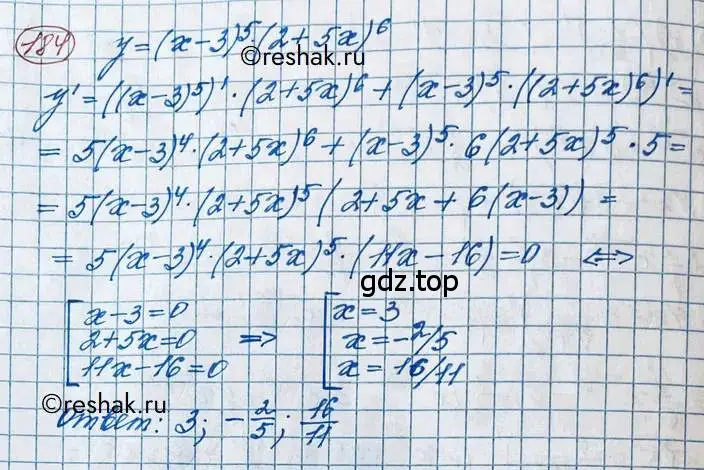 184 y = (x-3)^5 · (2+5x)^6
©reshak.ru
y' = ((x-3)^5)' · (2+5x)^6 + (x-3)^5 · ((2+5x)^6)' =
= 5(x-3)^4 · (2+5x)^6 + (x-3)^5 · 6(2+5x)^5 · 5 =
= 5(x-3)^4 · (2+5x)^5 (2+5x + 6(x-3)) =
= 5(x-3)^4 · (2+5x)^5 · (11x-16) = 0 ⇔
гдз.top
[ x-3=0 [ x=3
2+5x=0 => x=-2/5
11x-16=0 x=16/11
©reshak.ru
Ответ: 3; -2/5; 16/11
©reshak.ru